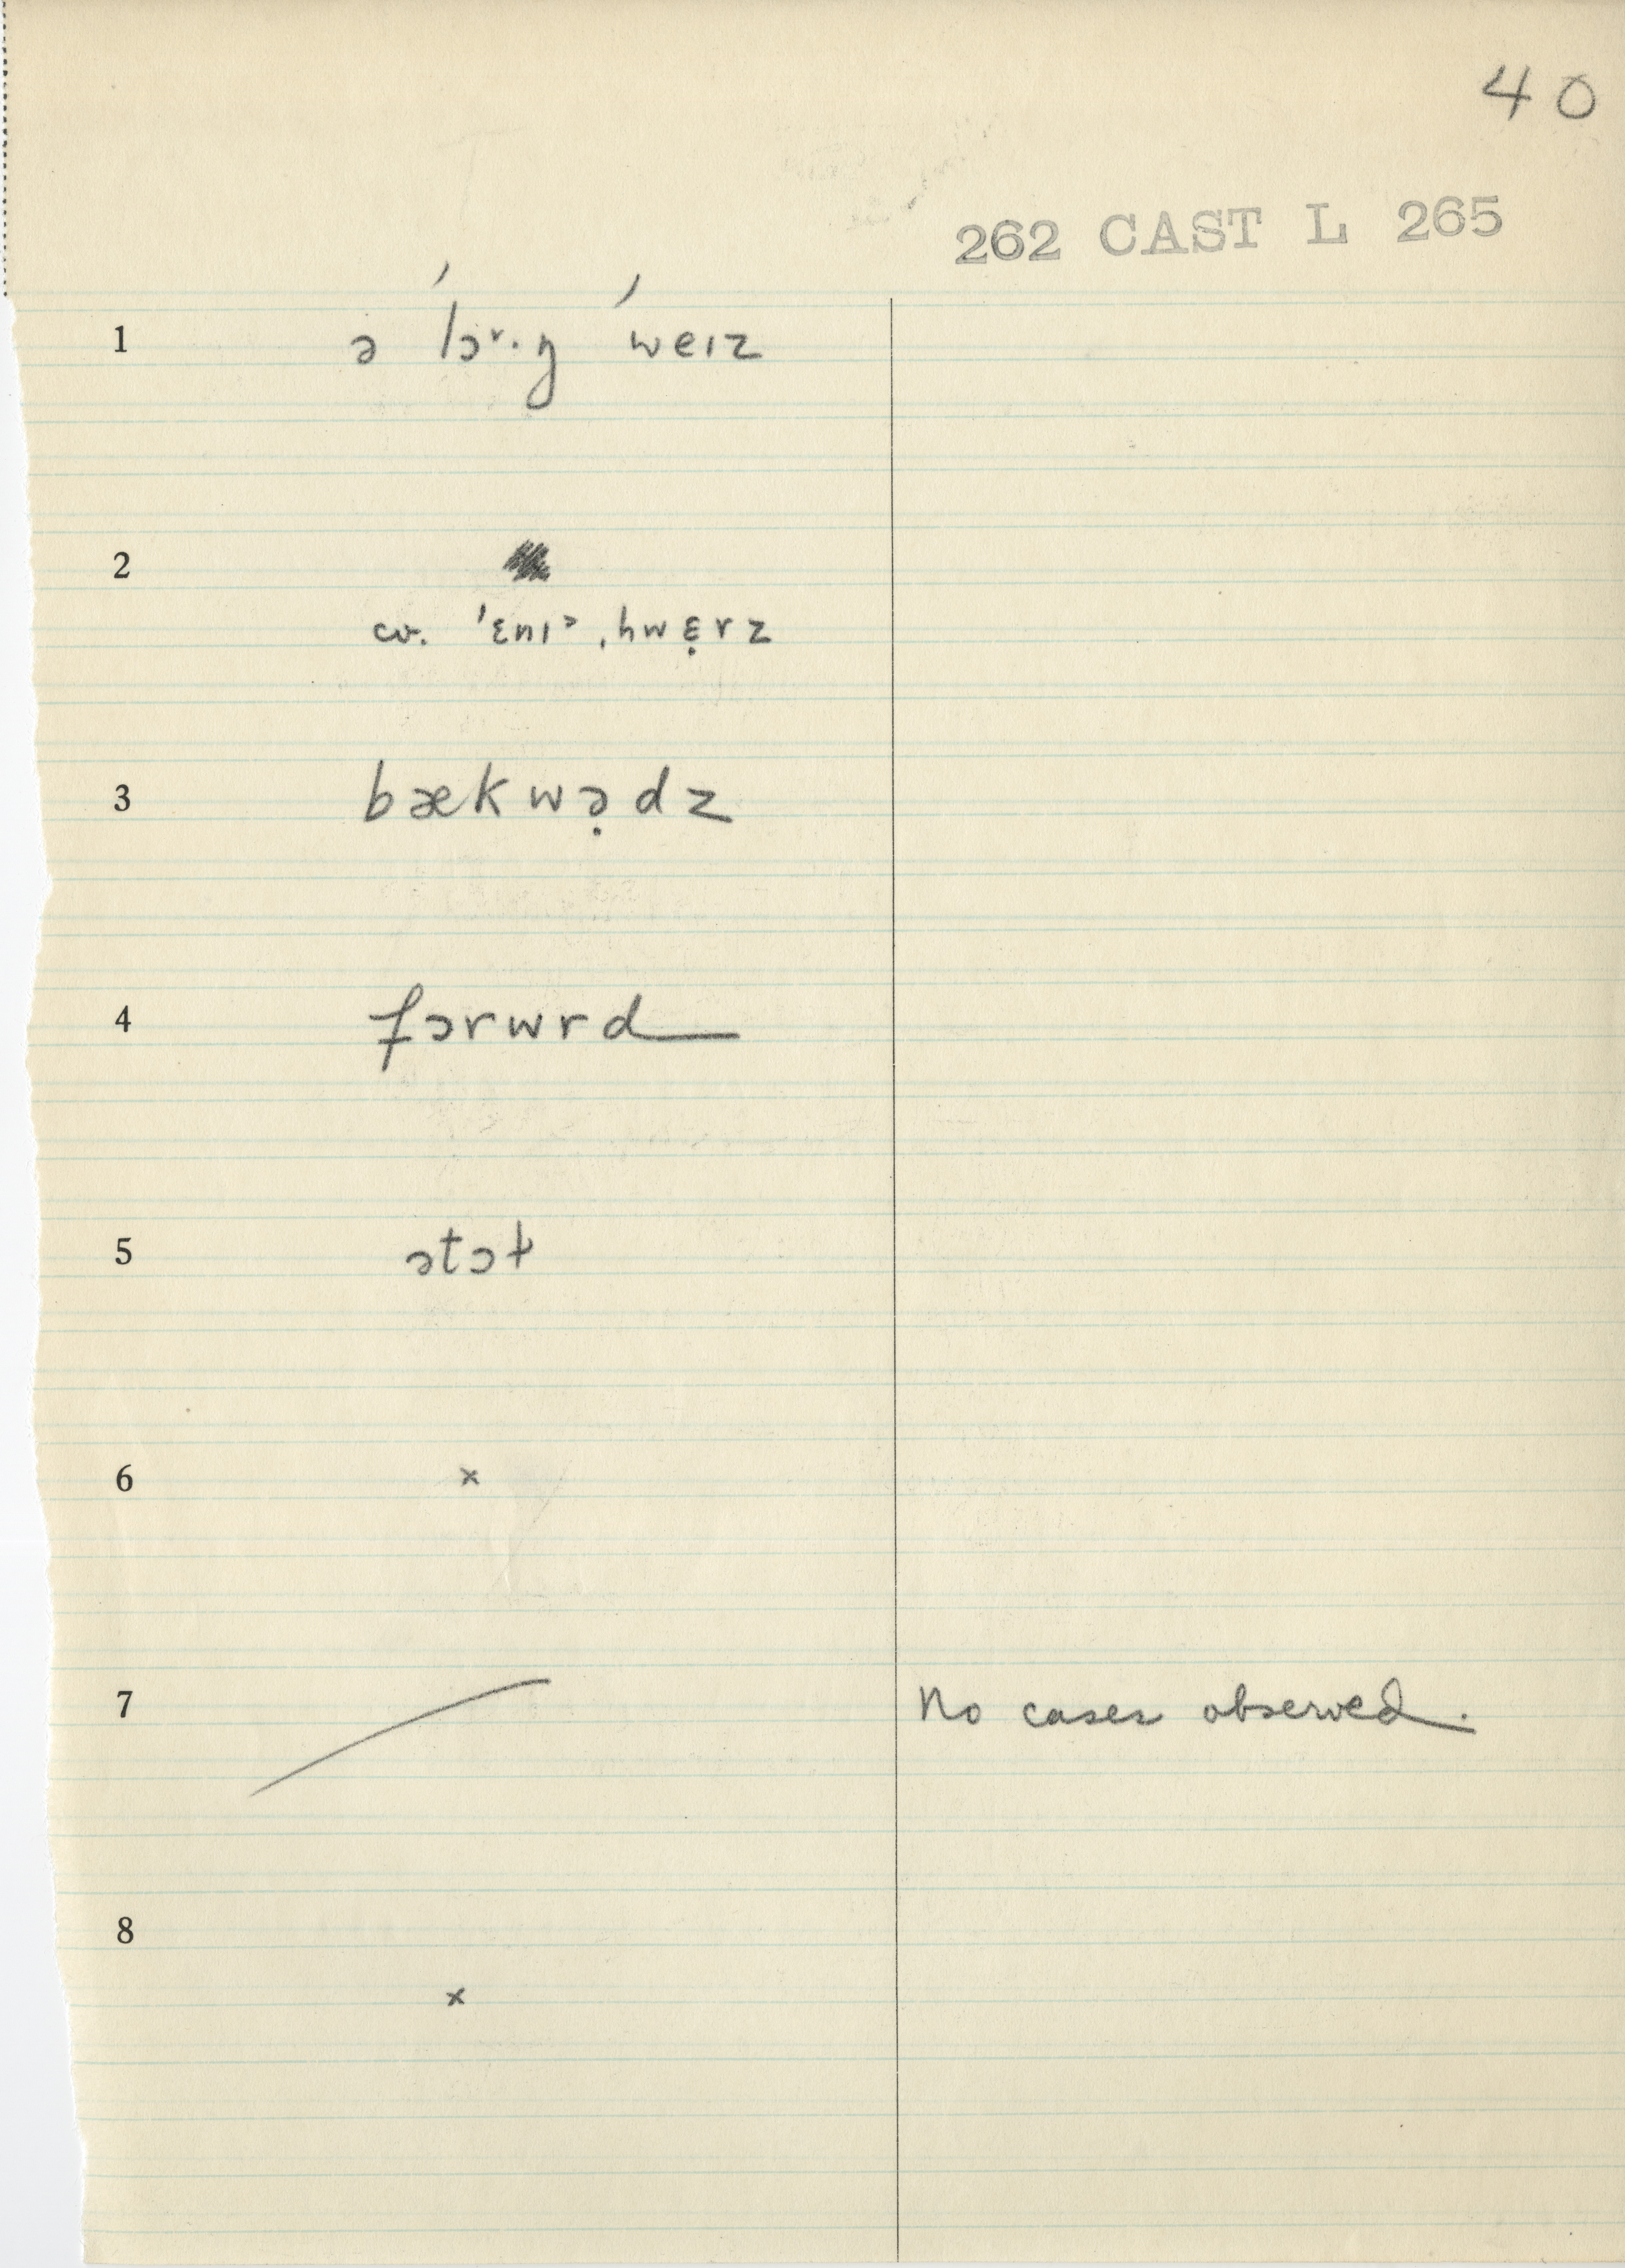 40
262 CAST L 265
1 ə ˈlɔ˞·ŋ ˈweɪz
2
cv. ˈɛnɪ˃ ˌhwɛ̣rz
3 bækwə̣dz
4 fɔrwrd
5 ətɔɫ
6 ×
7 No cases observed.
8
×